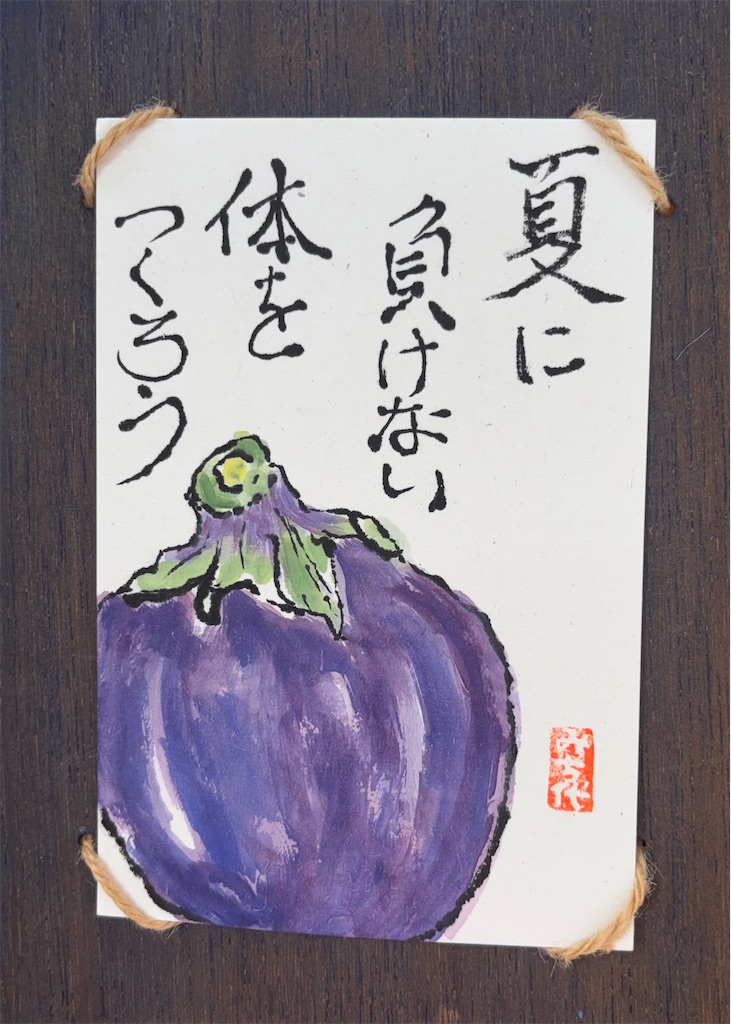 夏に
負けない
体を
つくろう